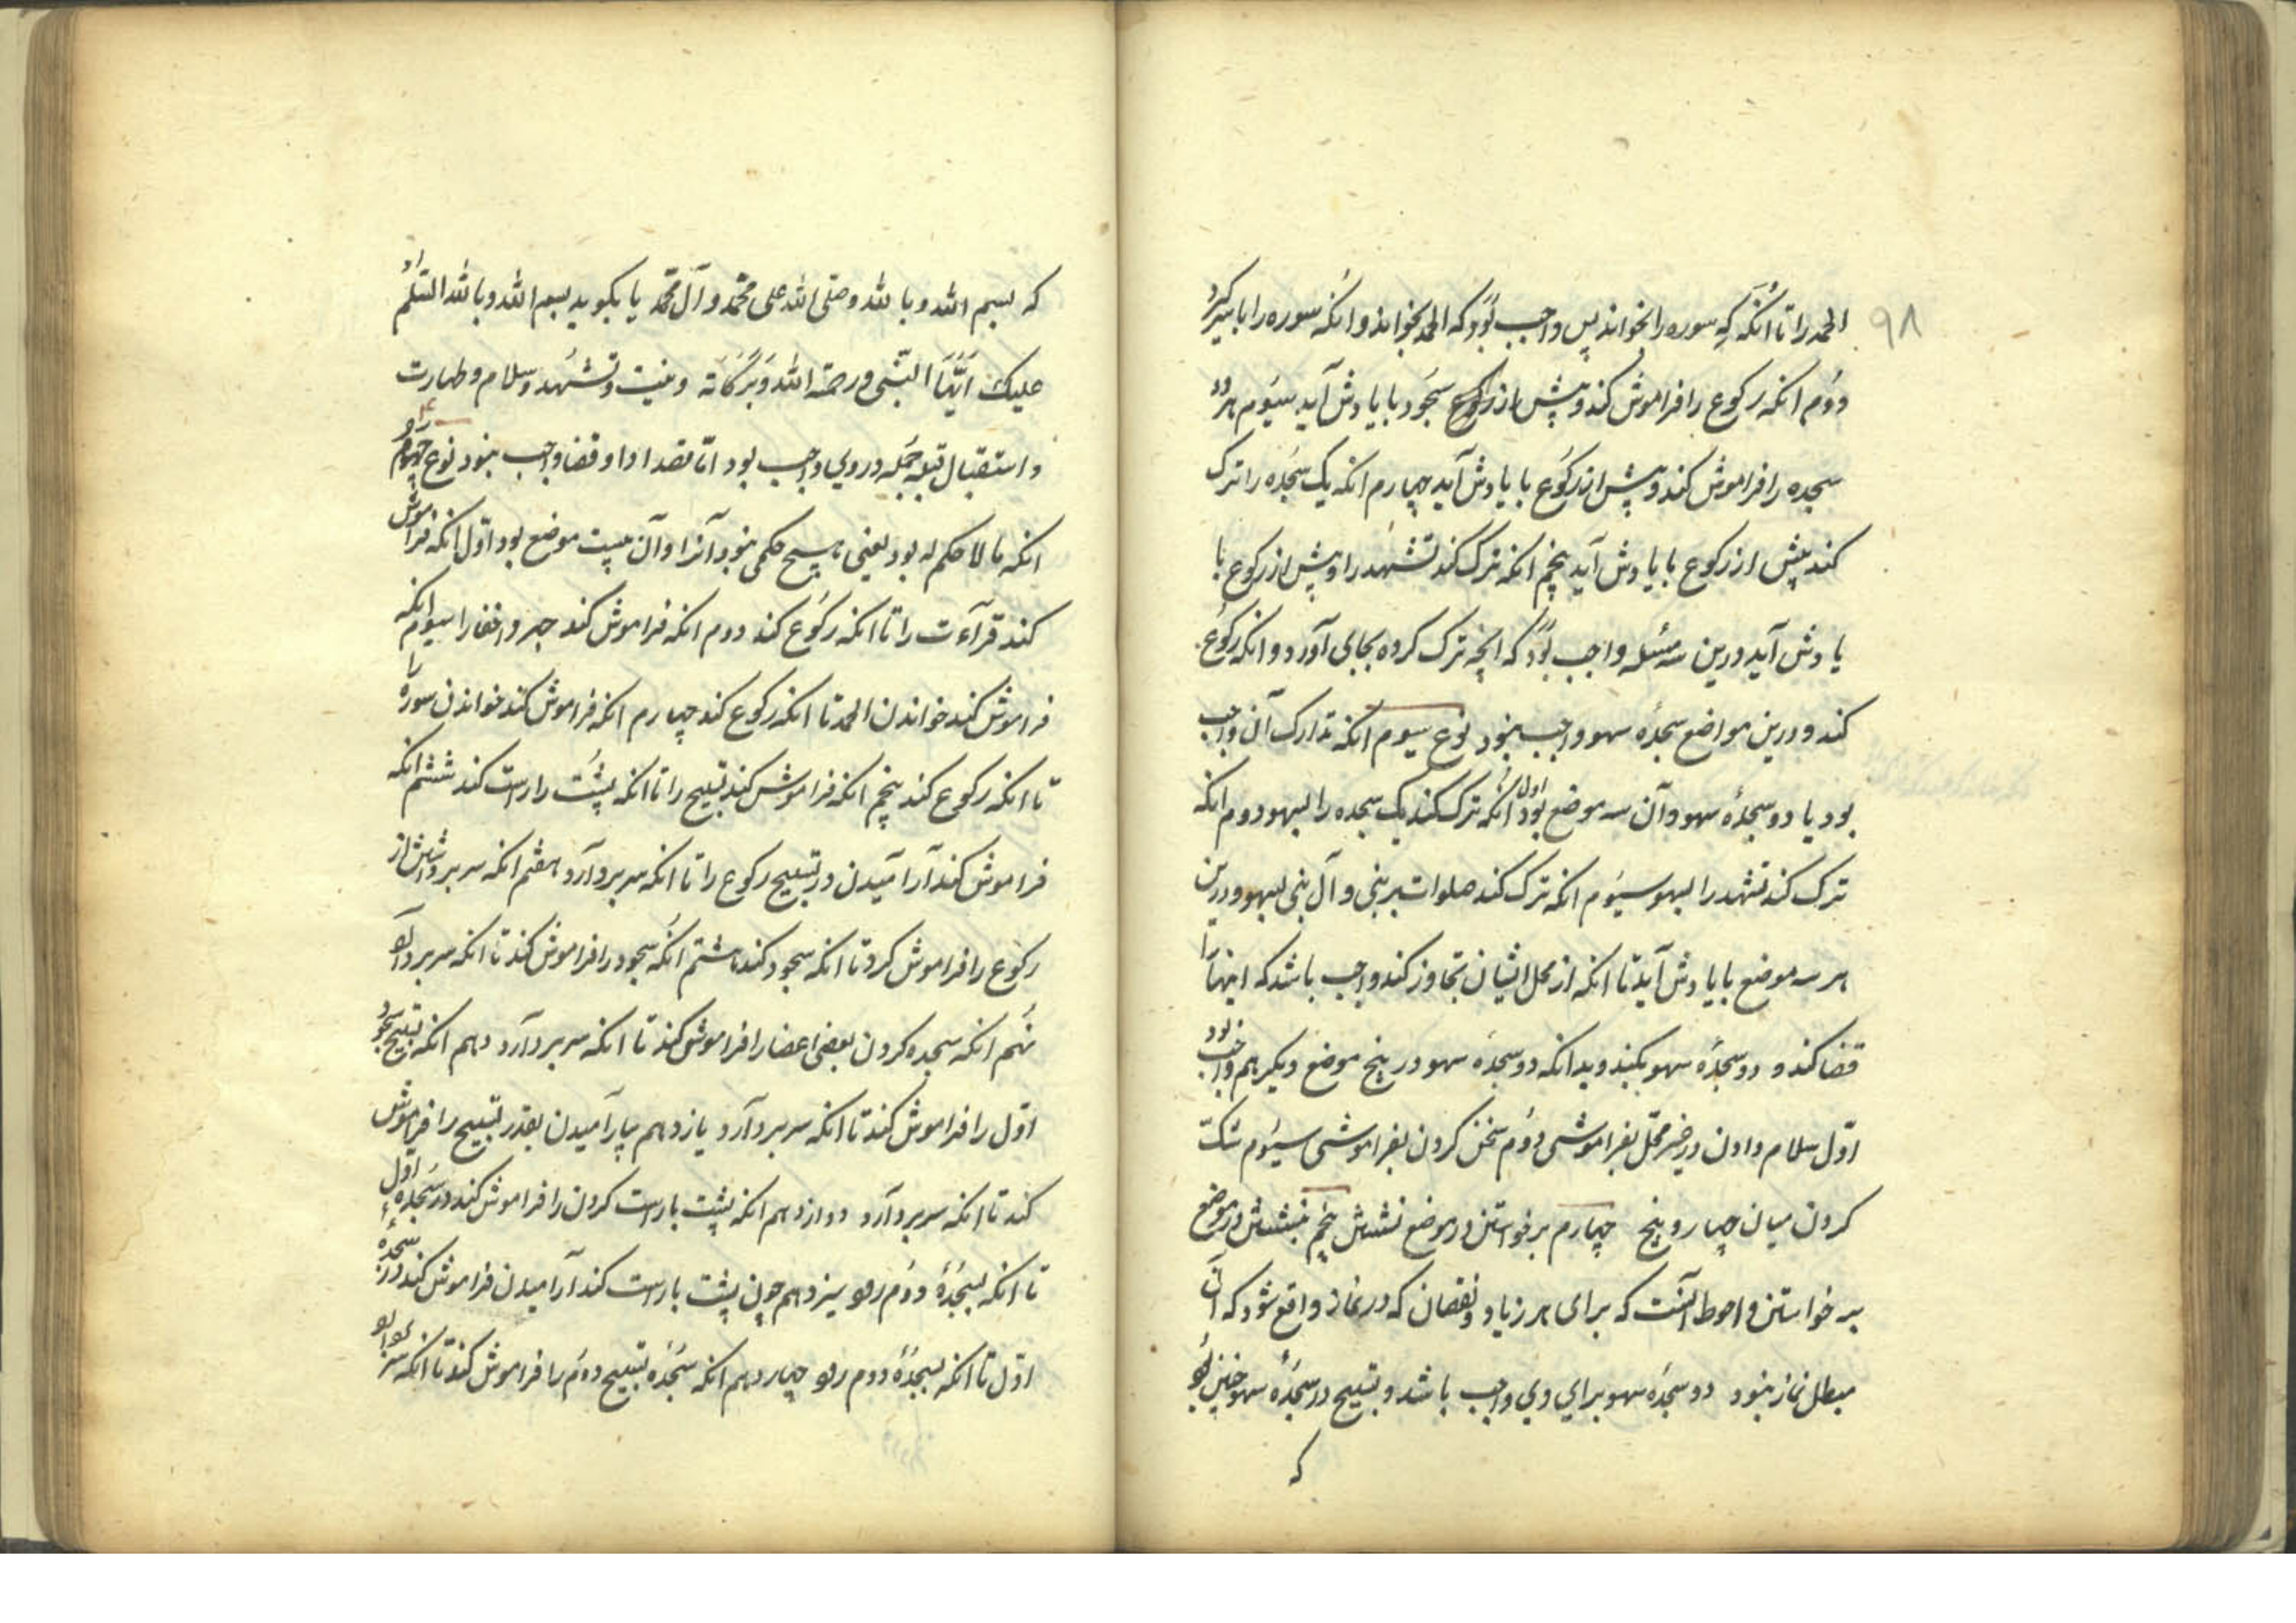 ۹۸
الحمد را تا انکه که سوره را بخواند پس واجب بود که الحمد بخواند و انکه سوره را با سر کیرد
دوم انکه رکوع را فراموش کند و پیش از رکوع سجود با یادش آید سیوم هر دو
سجده را فراموش کند و پیش از رکوع با یادش آید چهارم انکه یک سجده را ترک
کند پیش از رکوع با یادش آید پنجم انکه ترک کند تشهد را و پیش از رکوع با
یادش آید درین سه مسئله واجب بود که انچه ترک کرده بجای آورد و انکه رکوع
کند و درین مواضع سجده سهو واجب نبود نوع سیوم انکه تدارک آن واجب
بود یا دو سجدهٔ سهو و آن سه موضع بود اول انکه ترک کند یک سجده را بسهو دوم انکه
ترک کند تشهد را بسهو سیوم انکه ترک کند صلوات بر نبی و آل نبی بسهو و درین
هر سه موضع با یادش آید تا انکه از محل ایشان تجاوز کند واجب باشد که اینها را
قضا کند و دو سجدهٔ سهو بکند و بدانکه دو سجده سهو در پنج موضع دیکر هم واجب بود
اوّل سلام دادن در غیر محلّ بفراموشی دوم سخن کردن بفراموشی سیوم شکّ
کردن میان چهار و پنج چهارم برخواستن در موضع نشستن پنجم نشستن در موضع
برخواستن و احوط آنست که برای هر زیاد و نقصان که در نماز واقع شود که آن
مبطل نماز نبود دو سجده سهو برای وی واجب باشد و تسبیح در سجدهٔ سهو چنین بود
که
که بسم الله و بالله و صلی الله علی محمد و آل محمد یا بکوید بسم الله و بالله السلام
علیک ایّها النّبی و رحمة الله و برکاته و نیت و تشهد و سلام و طهارت
و استقبال قبله جمله در وی واجب بود امّا قصد ادا و قضا واجب نبود نوع چهارم
انکه ما لا حکم له بود یعنی هیچ حکمی نبود آنرا و آن بیست موضع بود اوّل انکه فراموش
کند قرآءت را تا انکه رکوع کند دوم انکه فراموش کند جهر و اخفا را سیوم انکه
فراموش کند خواندن الحمد تا انکه رکوع کند چهارم انکه فراموش کند خواندن سوره را
تا انکه رکوع کند پنجم انکه فراموش کند تسبیح را تا انکه پشت را راست کند ششم انکه
فراموش کند آرامیدن در تسبیح رکوع را تا انکه سر بردارد هفتم انکه سر برداشتن از
رکوع را فراموش کرد تا انکه سجود کند هشتم انکه سجود را فراموش کند تا انکه سر بردارد
نهم انکه سجده کردن بعضی اعضا را فراموش کند تا انکه سر بردارد دهم انکه تسبیح سجود
اوّل را فراموش کند تا انکه سر بردارد یازدهم آرامیدن بقدر تسبیح را فراموش
کند تا انکه سر بردارد دوازدهم انکه پشت باراست کردن را فراموش کند در سجدهٔ اوّل
تا انکه بسجدهٔ دوم رود سیزدهم چون پشت باراست کند آرامیدن فراموش کند در سجدهٔ
اوّل تا انکه بسجدهٔ دوم رود چهاردهم انکه سجده تسبیح دوم را فراموش کند تا انکه سر